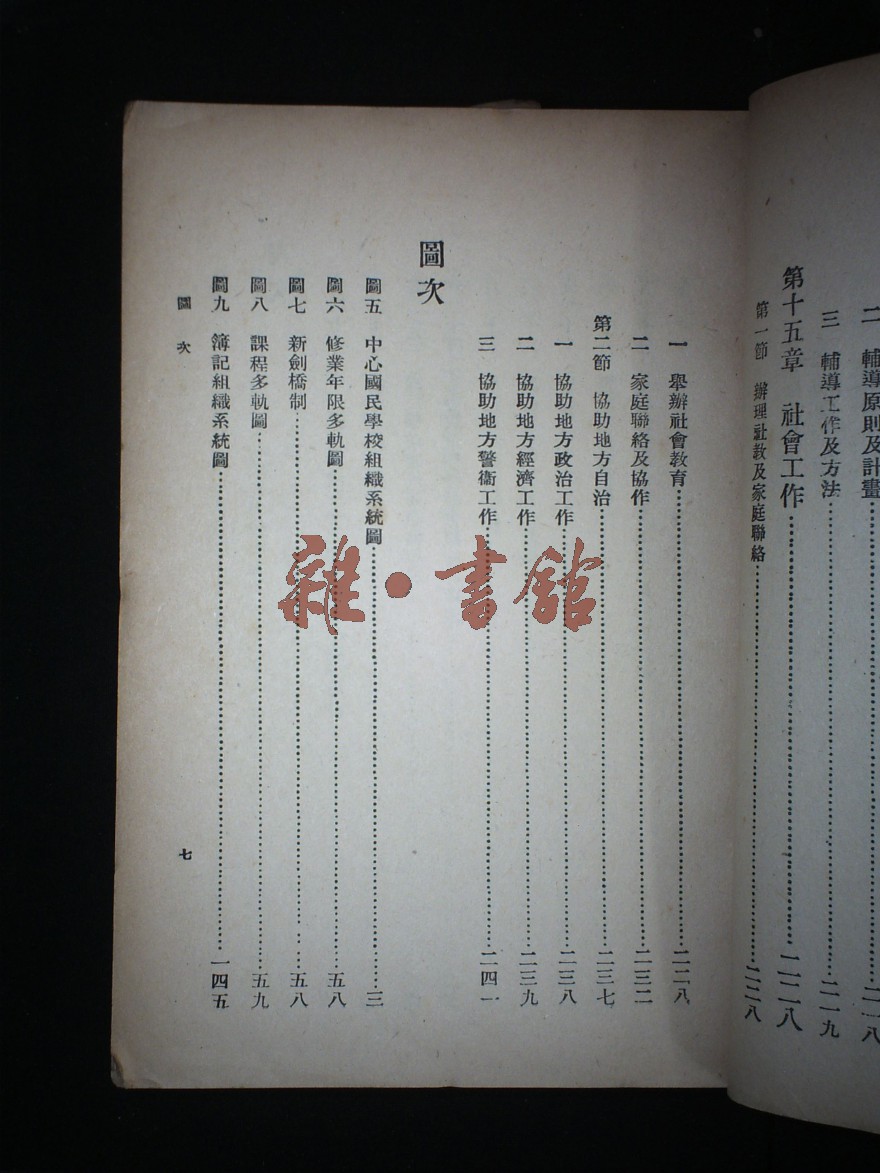 二 輔導原則及計畫……二一八
三 輔導工作及方法……二一九
第十五章 社會工作……二二八
第一節 辦理社教及家庭聯絡……二二八
一 舉辦社會教育……二二八
二 家庭聯絡及協作……二三二
第二節 協助地方自治……二三七
一 協助地方政治工作……二三八
二 協助地方經濟工作……二三九
三 協助地方警衞工作……二四一
圖次
圖五 中心國民學校組織系統圖……三
圖六 修業年限多軌圖……五八
圖七 新劍橋制……五八
圖八 課程多軌圖……五九
圖九 簿記組織系統圖……一四五
圖次
七
雜·書館